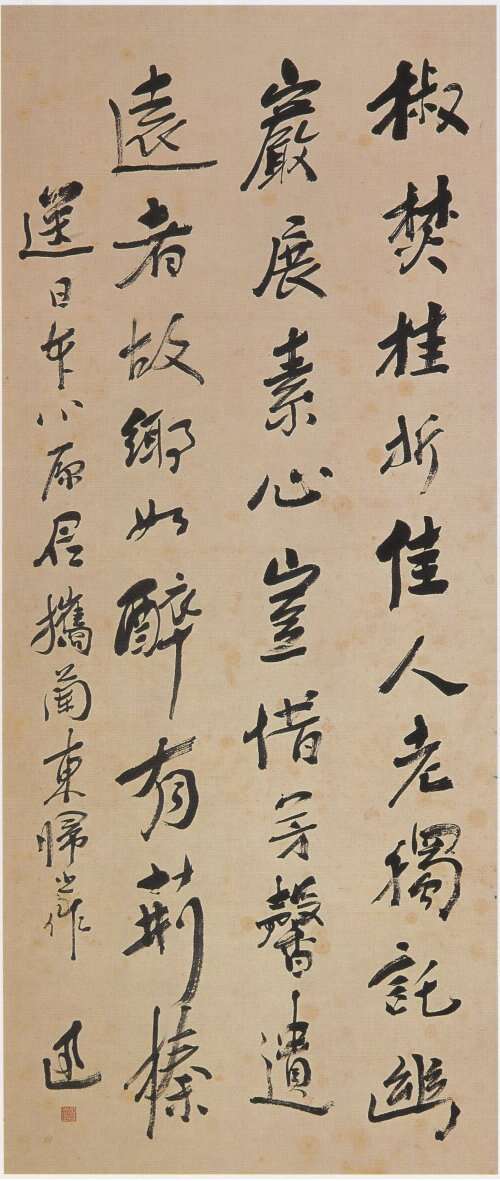 椒焚桂折佳人老獨託幽
巖展素心豈惜芳馨遺
遠者故鄉如醉有荊榛
送日本小原君攜蘭東歸作 迅